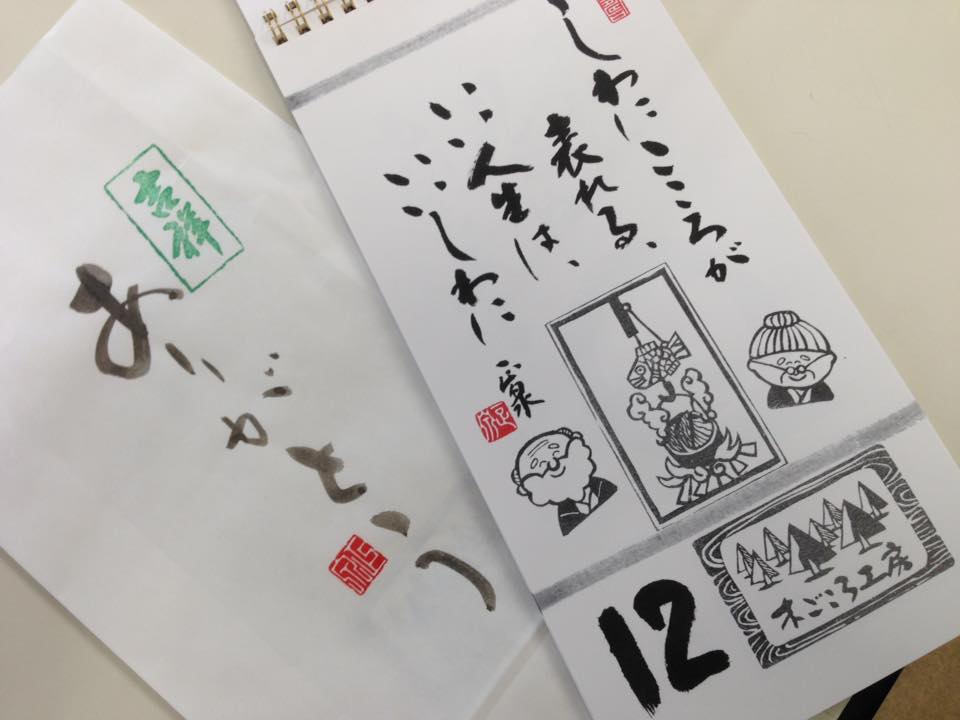 吉祥
ありがとう
しわにこころが
表れる、
いい人生は、
いいしわに
木ごころ工房
12